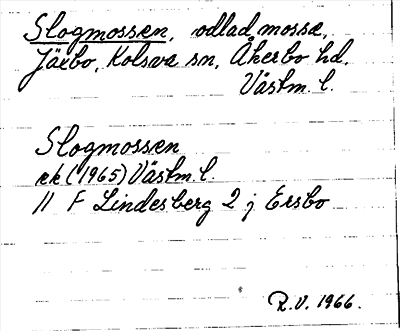 Slogmossen, odlad mossa,
Järbo, Kolsva sn, Åkerbo hd,
Västm. l.
Slogmossen
ek (1965) Västm. l.
11 F Lindesberg 2 j Ersbo
R.V. 1966.